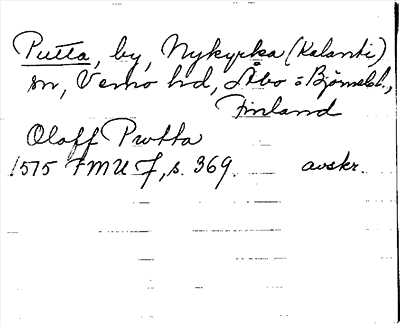 Putta, by, Nykyrka (Kalanti)
sn, Vemo hd, Åbo o Björneb.,
Finland
Olaff Prvtta
1575 FMU F, s. 369. avskr.